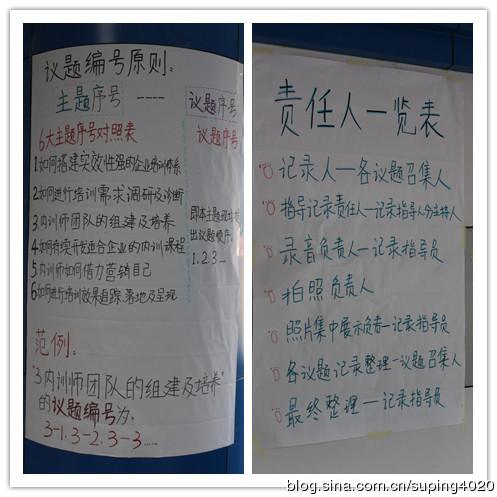 议题编号原则:
主题序号 ---- 议题序号
6大主题序号对照表
1如何搭建实效性强的企业培训体系
2如何进行培训需求调研及诊断
3内训师团队的组建及培养
4如何持续开发适合企业的内训课程
5内训师如何借力营销自己
6如何进行培训效果追踪、落地及呈现
议题序号
即本主题
出议题顺序.
1.2.3...
范例:
"3内训师团队的组建及培养"
的议题编号为.
3-1.3-2.3-3......
责任人一览表
记录人—各议题召集人
指导记录责任人—记录指导人分主持人
录音负责人—记录指导员
拍照负责人
照片集中展示负责—记录指导员
各议题记录整理—议题召集人
最终整理—记录指导员
blog.sina.com.cn/suping4020